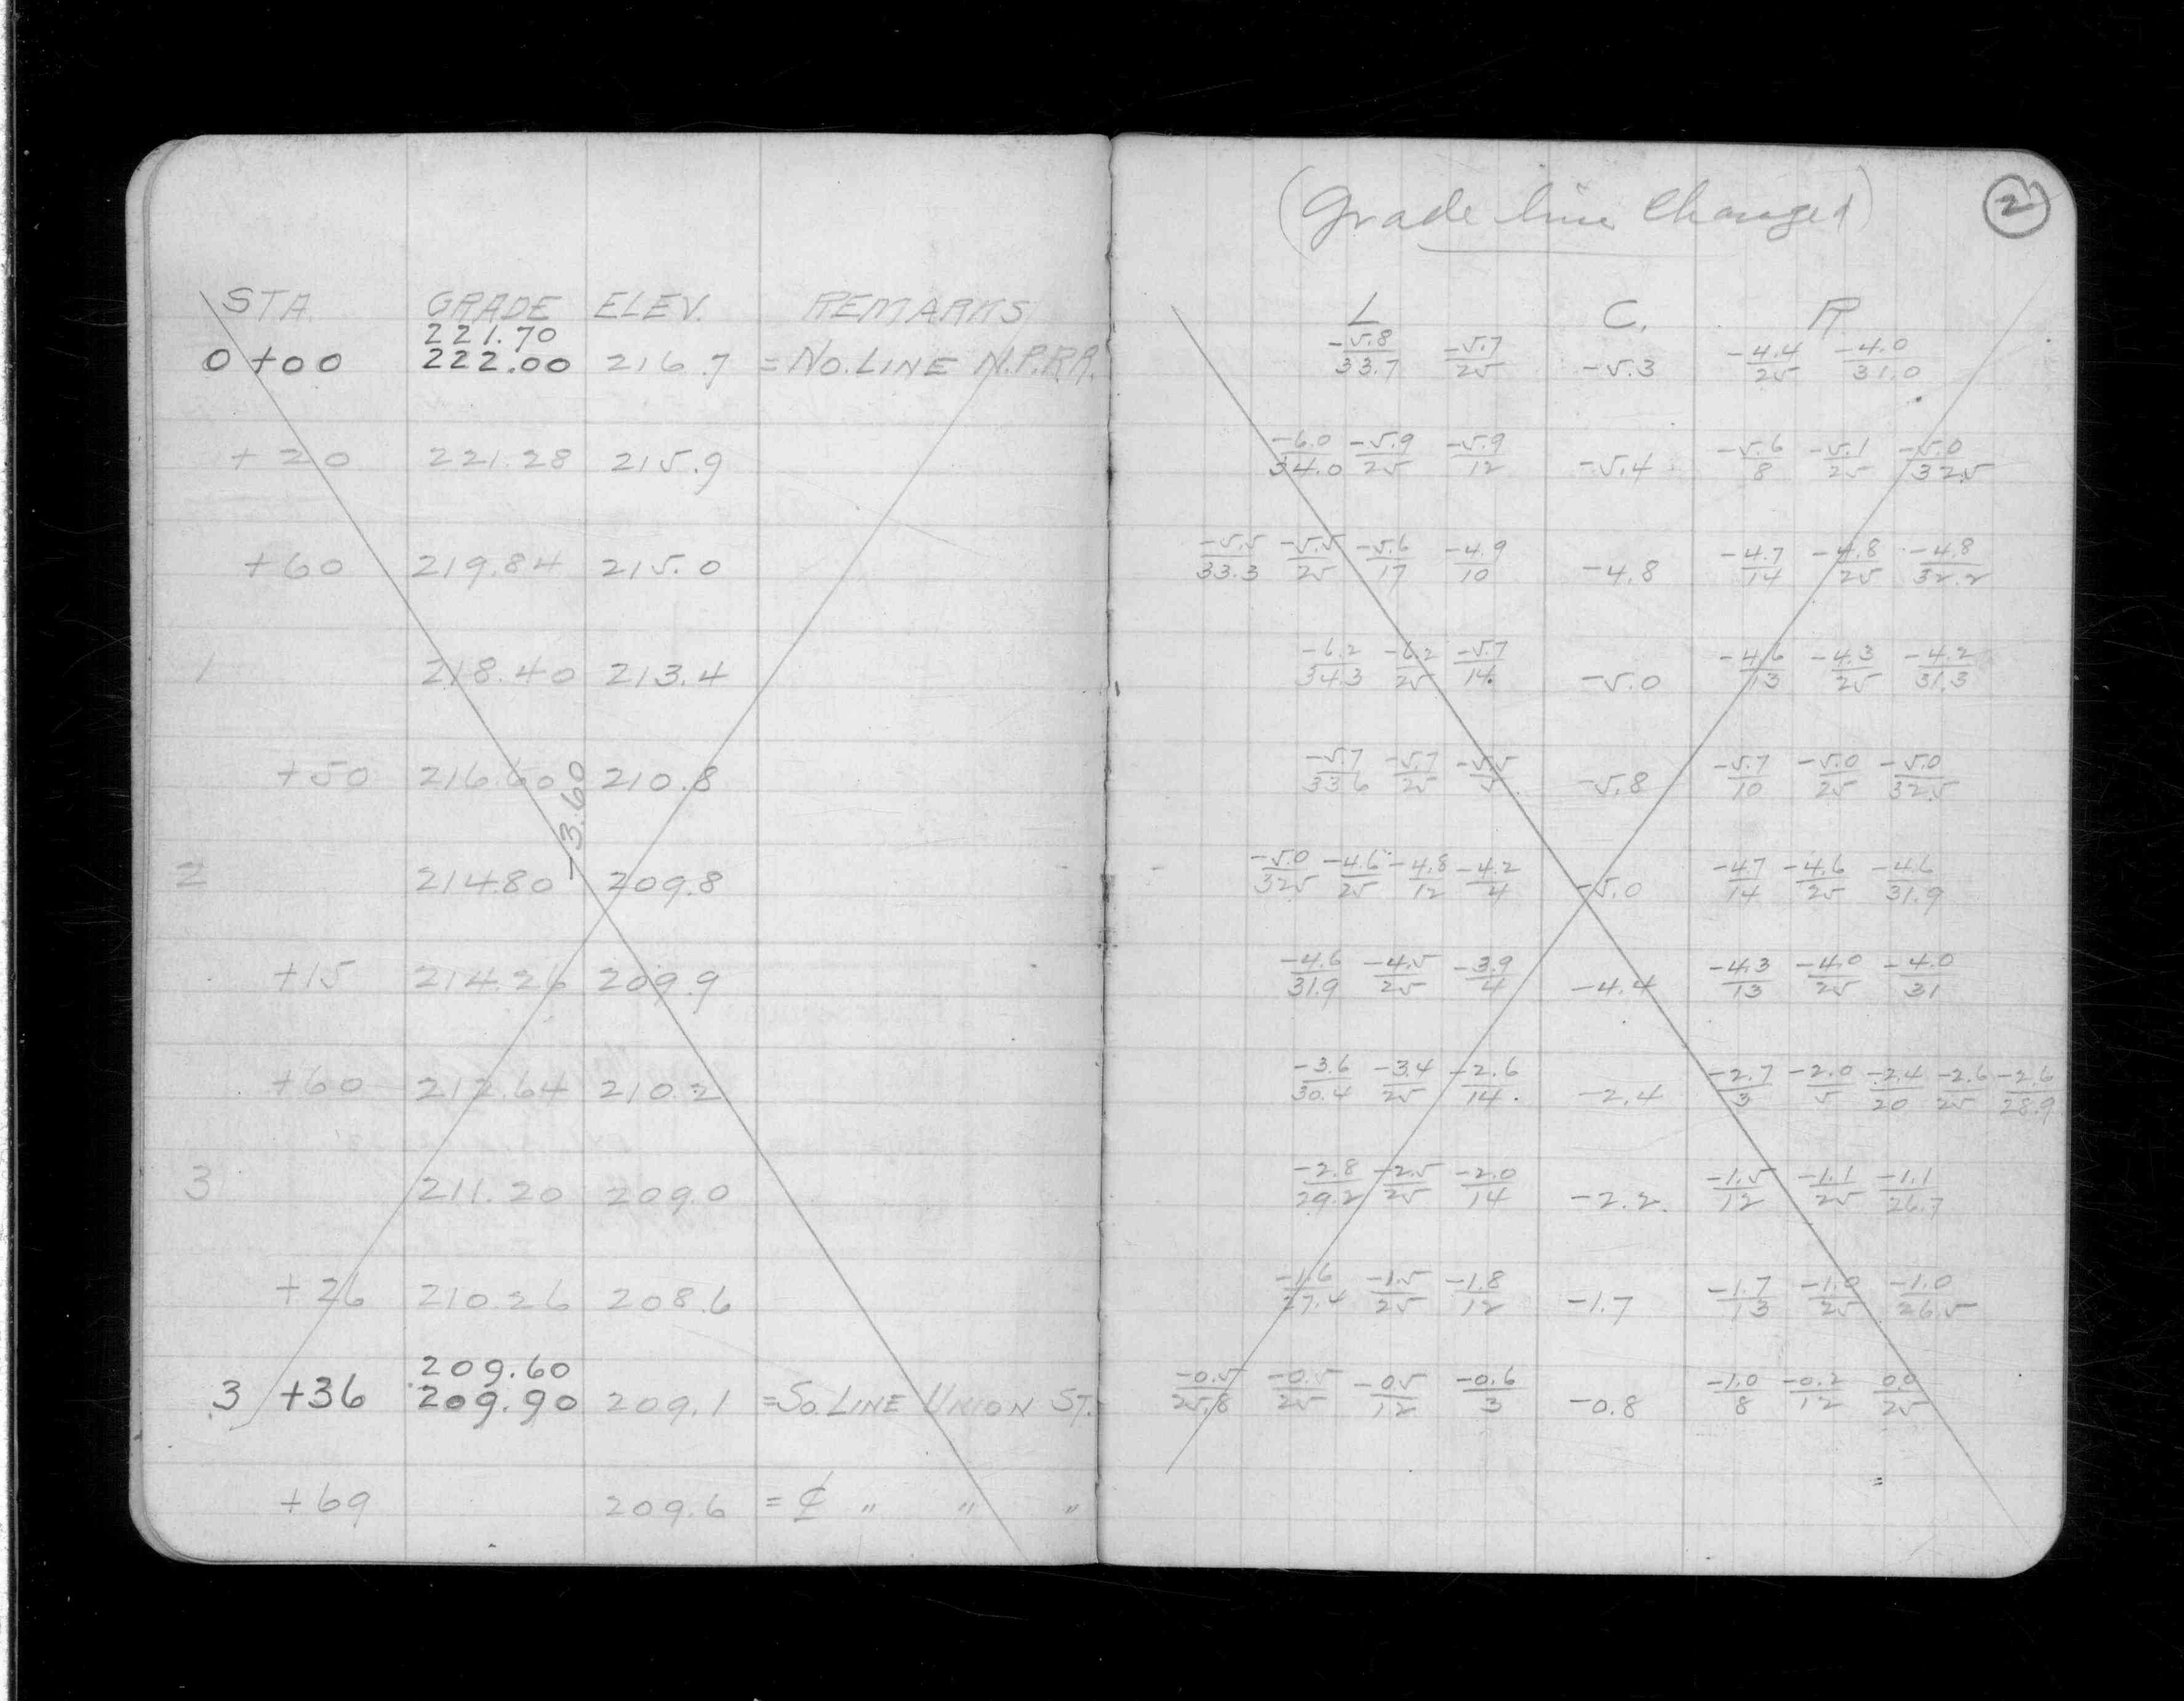 (Grade line Changed)
2
STA. GRADE ELEV. REMARKS L C. R
221.70
0+00 222.00 216.7 = NO. LINE N.P.R.R. -5.8/33.7 -5.7/25 -5.3 -4.4/25 -4.0/31.0
+20 221.28 215.9 -6.0/34.0 -5.9/25 -5.9/12 -5.4 -5.6/8 -5.1/25 -5.0/32.5
+60 219.84 215.0 -5.5/33.3 -5.5/25 -5.6/17 -4.9/10 -4.8 -4.7/14 -4.8/25 -4.8/32.2
1 218.40 213.4 -6.2/34.3 -6.2/25 -5.7/14 -5.0 -4.6/13 -4.3/25 -4.2/31.3
+50 216.60 210.8 -5.7/33.6 -5.7/25 -5.5/5 -5.8 -5.7/10 -5.0/25 -5.0/32.5
-3.60
2 214.80 209.8 -5.0/32.5 -4.6/25 -4.8/12 -4.2/4 -5.0 -4.7/14 -4.6/25 -4.6/31.9
+15 214.26 209.9 -4.6/31.9 -4.5/25 -3.9/4 -4.4 -4.3/13 -4.0/25 -4.0/31
+60 212.64 210.2 -3.6/30.4 -3.4/25 -2.6/14 -2.4 -2.7/3 -2.0/5 -2.4/20 -2.6/25 -2.6/28.9
3 211.20 209.0 -2.8/29.2 -2.5/25 -2.0/14 -2.2 -1.5/12 -1.1/25 -1.1/26.7
+26 210.26 208.6 -1.6/27.4 -1.5/25 -1.8/12 -1.7 -1.7/13 -1.0/25 -1.0/26.5
209.60
3 +36 209.90 209.1 = SO. LINE UNION ST. -0.5/25.8 -0.5/25 -0.5/12 -0.6/3 -0.8 -1.0/8 -0.2/12 0.0/25
+69 209.6 = ₵ " " "